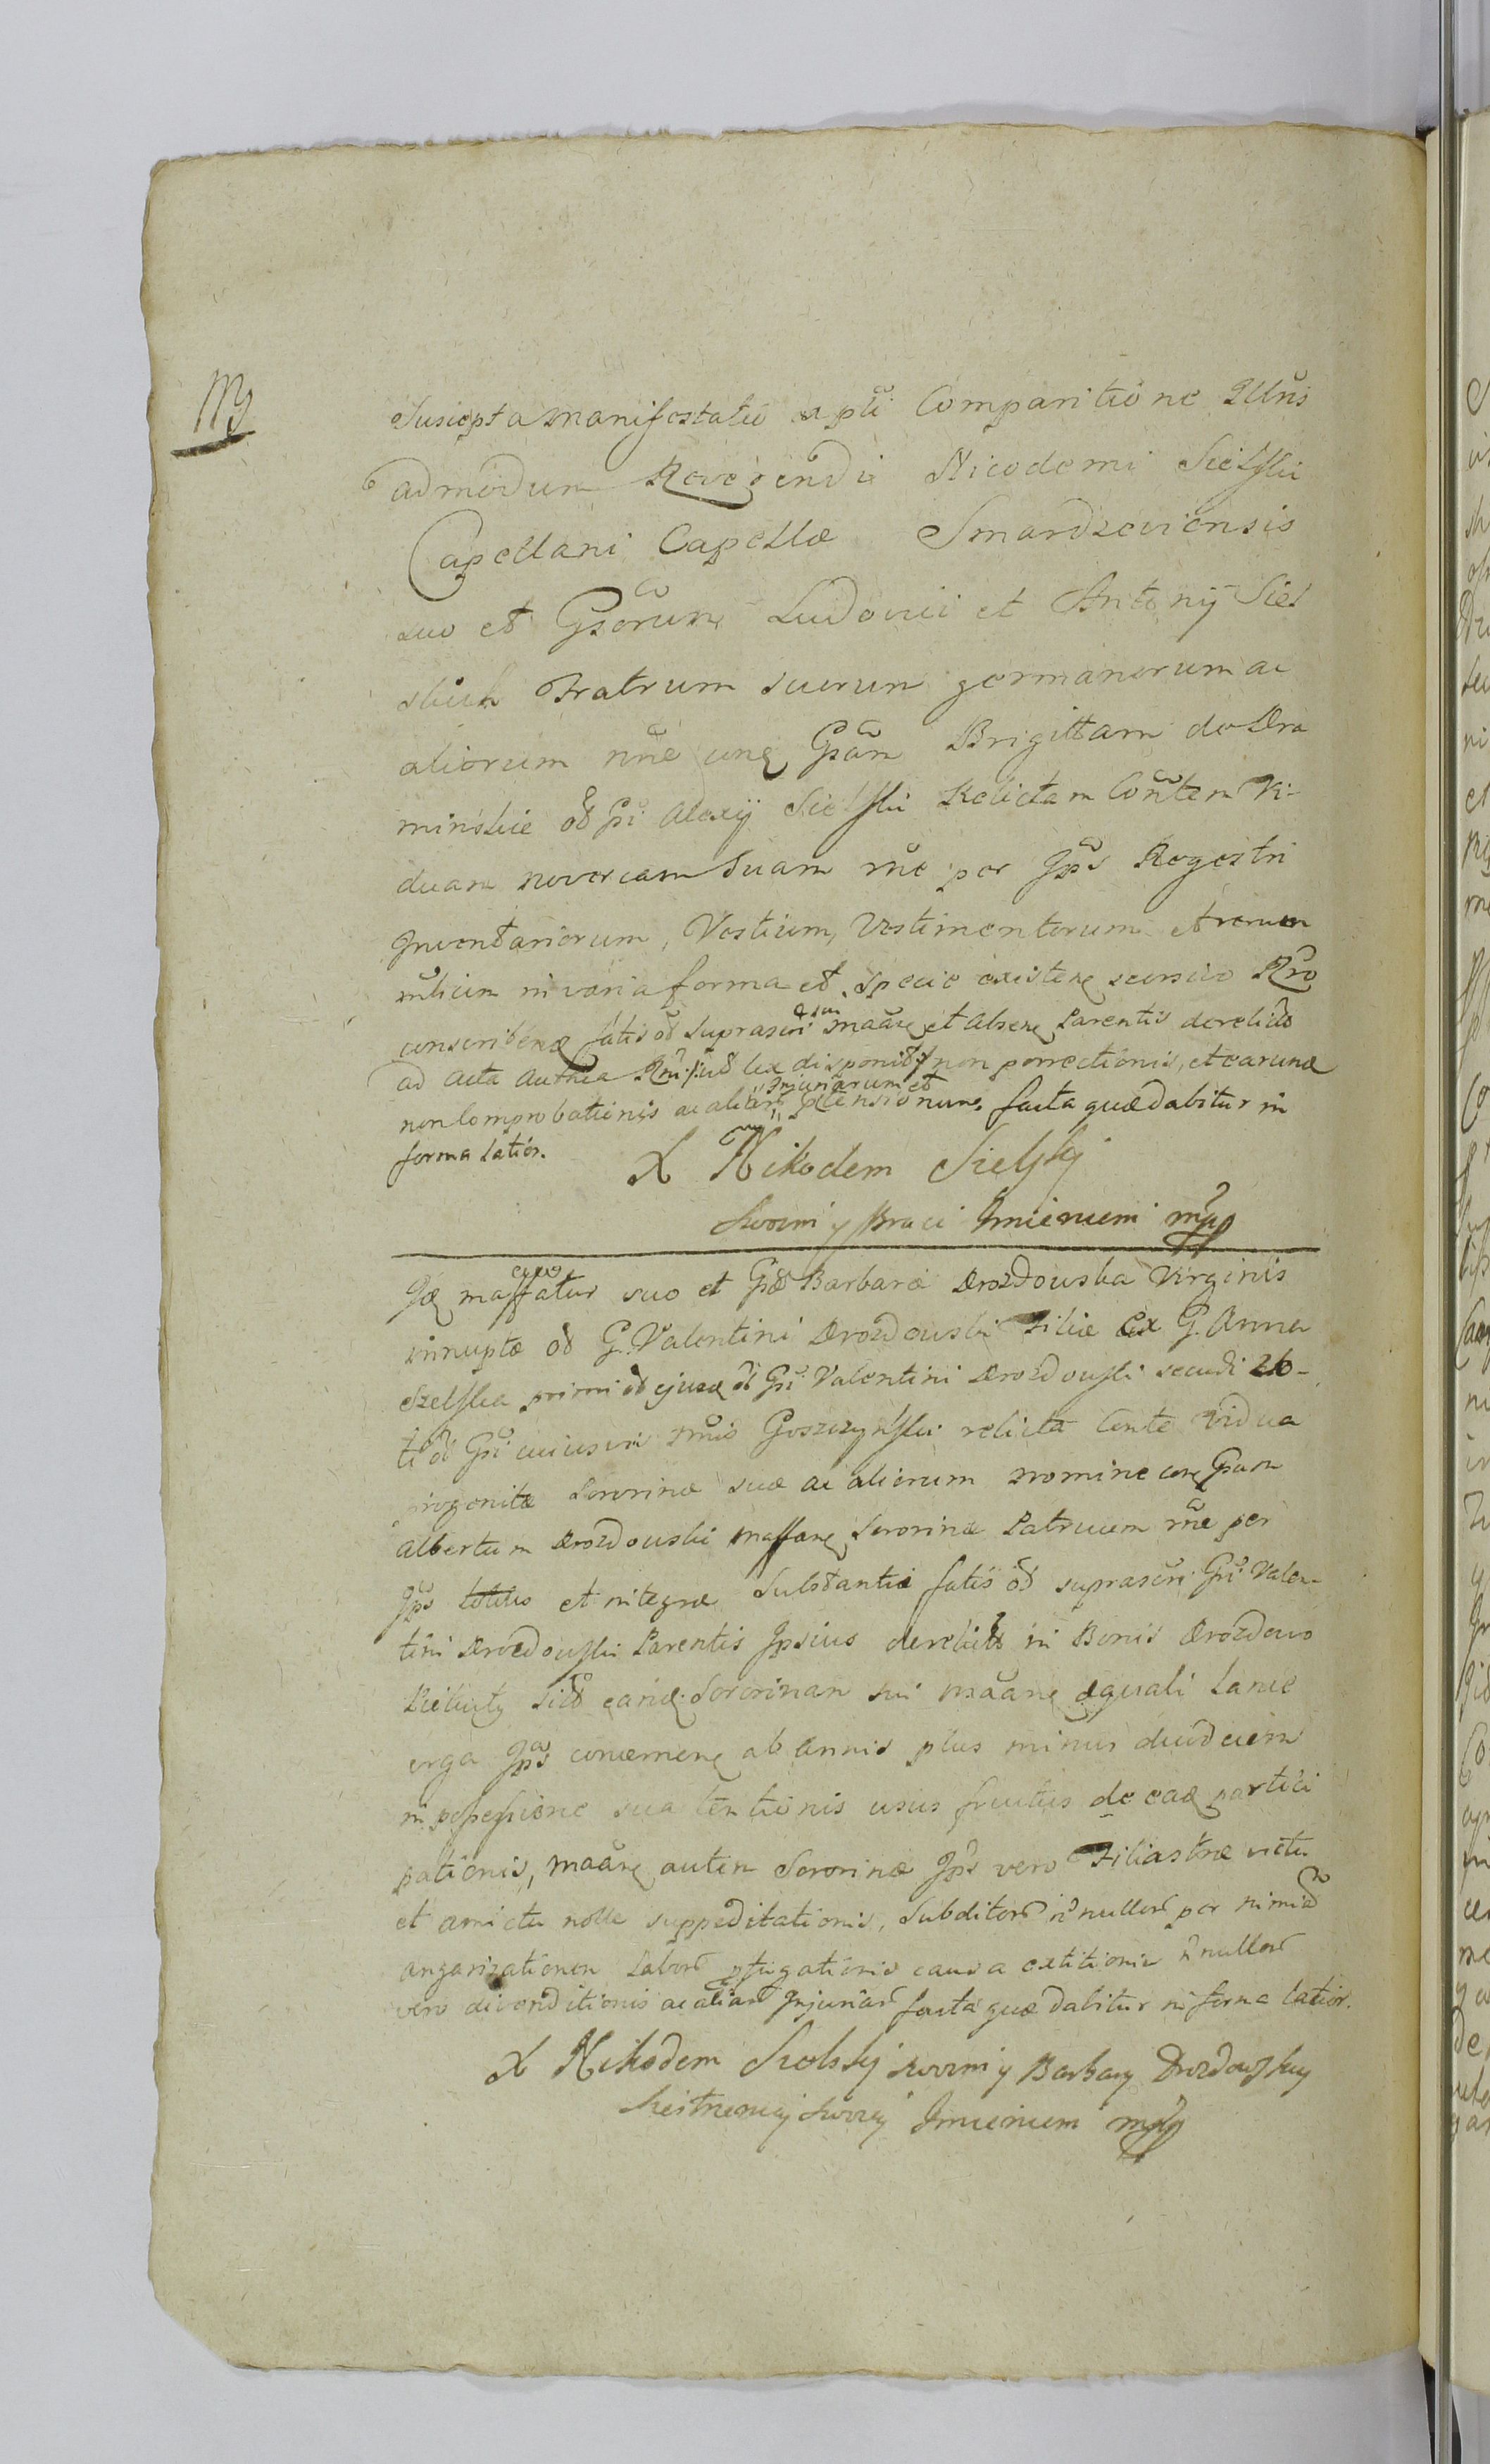 Mg
Suscepta manifestatio ex pti Comparitione Illris
admodum Reverendi Nicodemi Sielski
Capellani Capellæ Smardzeviensis
suo et Gsorum Ludovici et Antonij Siel
skich Fratrum suorum germanorum ac
aliorum nne conq Gsam Brigittam de Dra
minskie olt Gsi Alexij Sielski Relictam Contem Vi-
duam novercam suam rne per Jps Regestri
Inventariorum, Vestium, Vestimentorum et rerum
mlium in varia forma et specie existenq seorsivo Rro
conscribenæ fatis olt suprascri maãnq et absenq Parentis derelicto
ad Acta Authca Rni /: uti lex disponit :/ non porrectionis, et earunæ
non Comprobationis ac aliar Injuriarum et ptensionum facta quæ dabitur in
forma latior.
X Nikodem Sielski
swoim y Braci Imieniem mpp
Idæ maffatur suo et Gsæ Barbaræ Drozdowska Virginis
innuptæ olt G. Valentini Drozdouski Filiæ ex G. Anna
Szelska primi olt ejusæ olt Gsi Valentini Drozdouski secundi Vo-
ti olt Gsi cuiusvis nnis Goszczynski relicta Conte vidua
progenitæ Sororinæ suæ ac aliorum nomine conq Gsum
Albertum Drozdouski maffanq Sororinæ Patruum rne per
Jps totius et integræ Substantiæ fatis olt suprascri Gsi Valen-
tini Drozdouski Parentis Ipsius derelictæ in Bonis Drozdowo
eanæ Sororinam sui maãnq æquali lance
erga Jps concernenq ab annis plus minus duodecim
in possessione sua tentionis usus fructus de eaæ partici
pationis, maãnq autem Sororinæ Jps vero Filiastræ victu
et amictu nolle suppeditationis, Subditor nnullor per nimiam
angarizationem Labor pfugationis causa extitionis nnullor
vero divenditionis ac aliar Injuriar facta quæ dabitur in forma latior.
X Nikodem Sielski swoim y Barbary Drozdowsky
Siestrzenicy swoiey Imieniem mpp